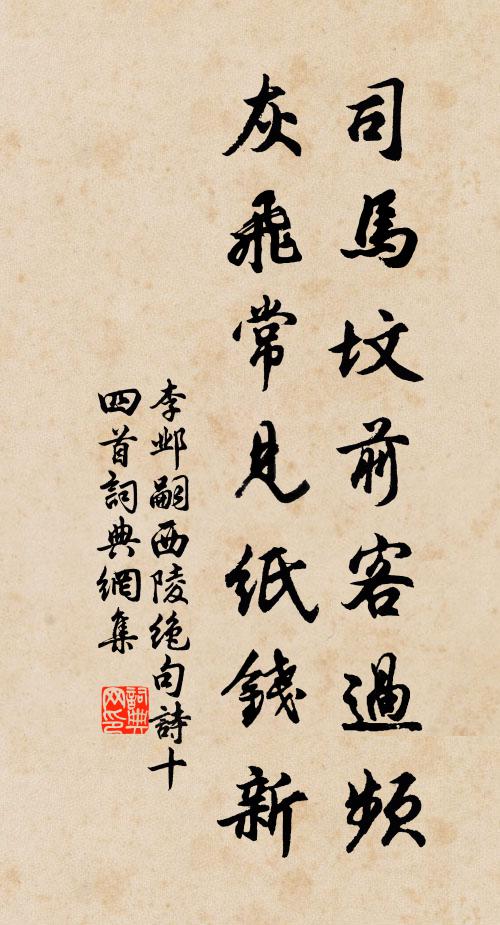 司馬坟前客過頻
灰飛常見紙錢新
李邺嗣西陵絶句詩十
四首詞典網集
詞典
网印